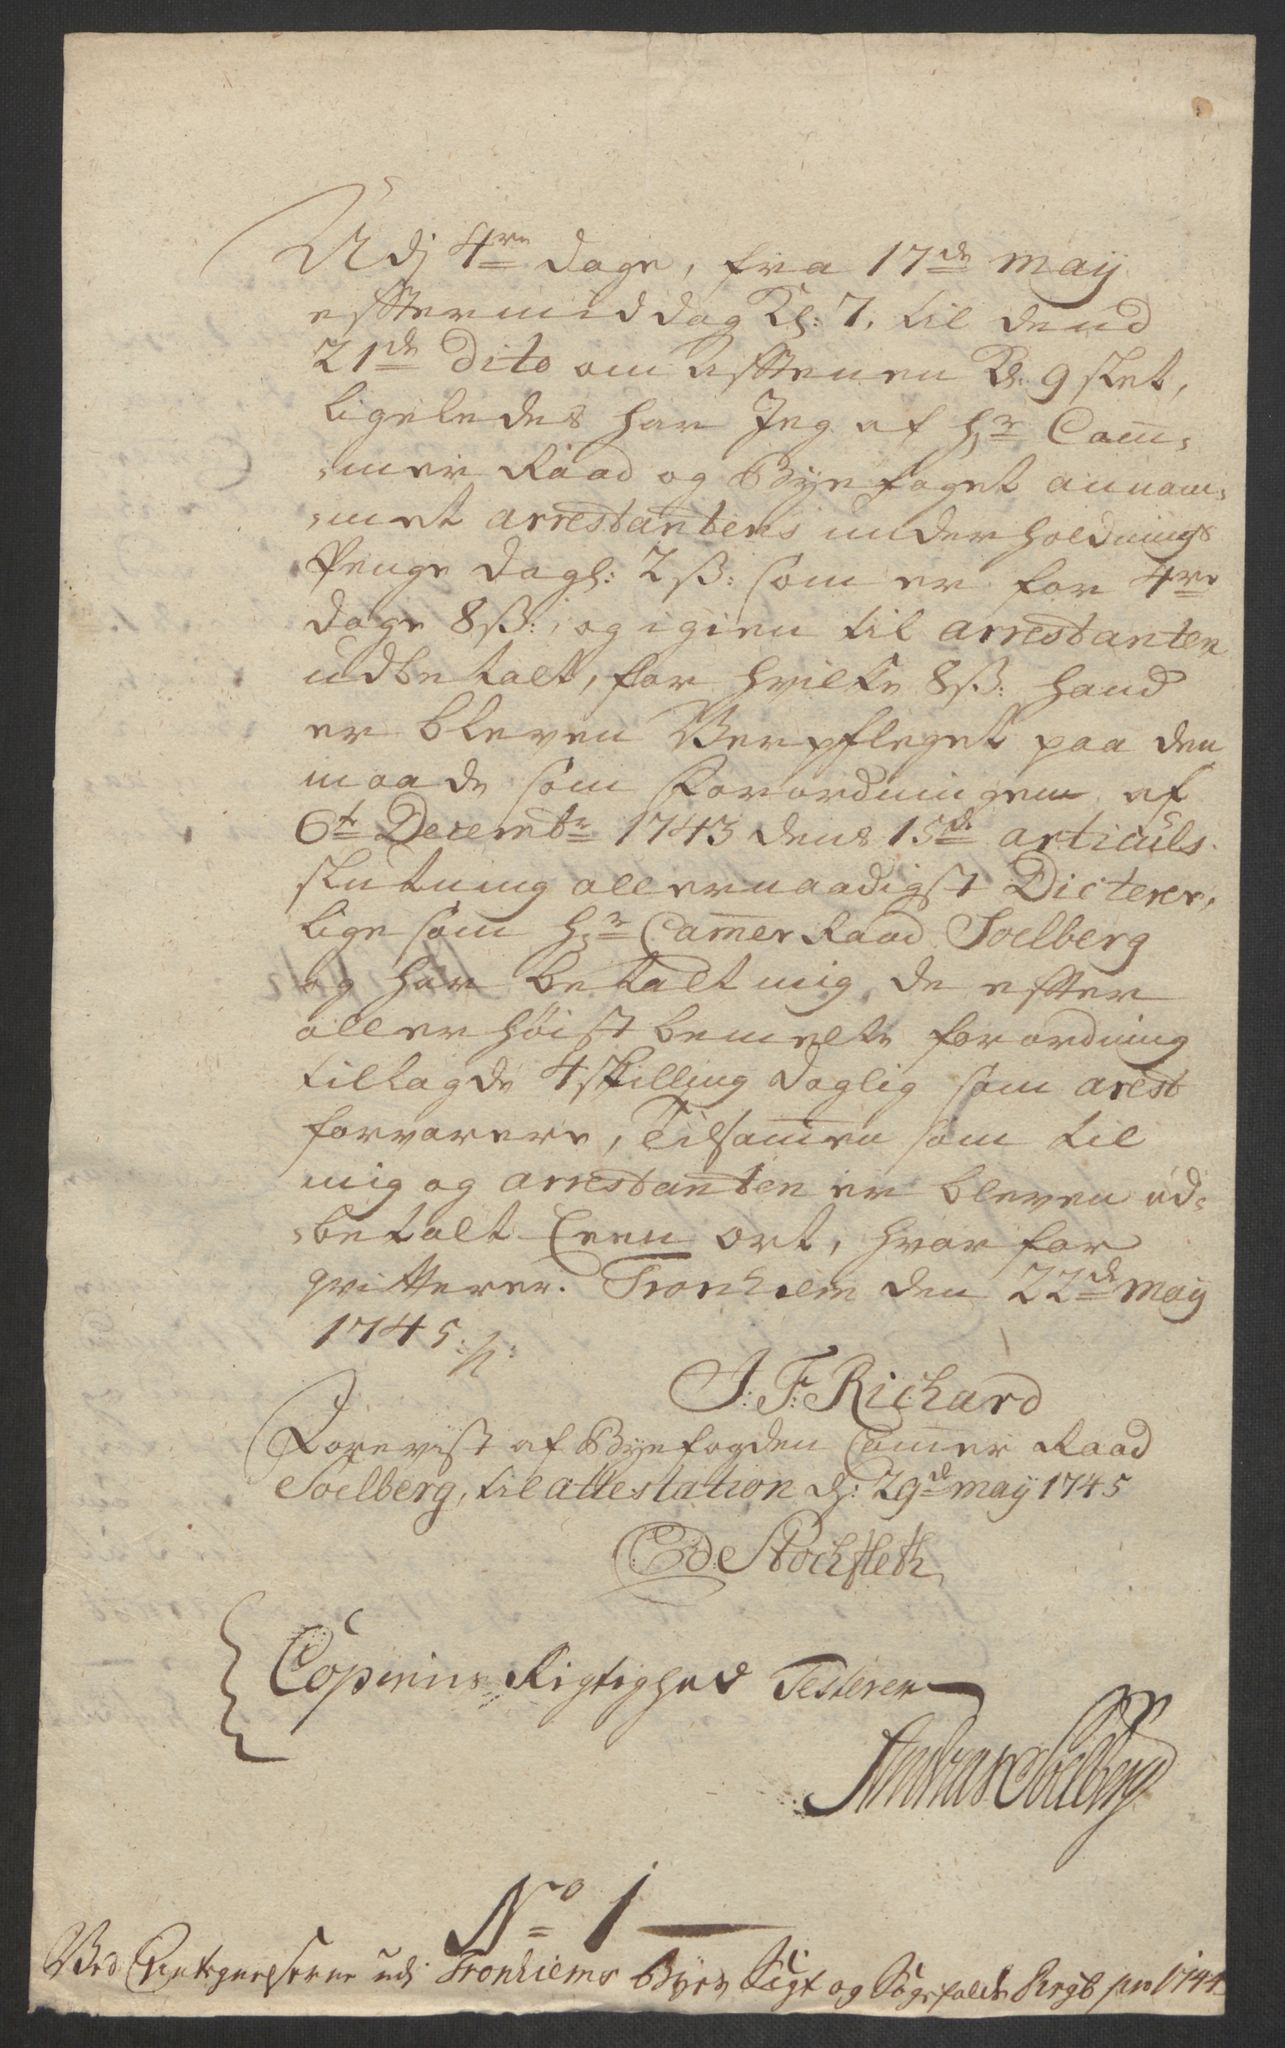 Udj 4re dage, fra 17de maij
efftermiddag Kl: 7. til dend
21de Dito om Afftenen Kl. 9 slet,
ligeledes har Jeg af Hr Cam̅,
,mer Raad og Byefoget annam,
,met arrestantens underholdnings
Penge dagl: 2 ß: som er for 4re
dage 8 ß:, og igien til arrestanten
udbetalt, for hvilke 8 ß: hand
er bleven Verpfleget paa den
maade som Forordningen af
6te Decembr 1743 dens 15de articuls
slutning allernaadigst Dicterer,
lige som Hr Cam̅er Raad Soelberg
og har betalt mig de efter
allerhöist bemelte forordning
tillagde 4 skilling daglig som arest
forvarere, Tilsam̅en som til
mig og arrestanten er bleven ud,
,betalt Een ort, hvor for
qvitterer. Tronhiem den 22de Maij
1745.
J: F: Richard
Forevist af Byefogden Cam̅er Raad
Soelberg, til attestation d: 29de maij 1745
Stochfleth
Copiens Rigtighed Testerer
Andreas Soelberg
No 1
Ved Tronhiems Byes Sigt og Sagefalds Regb pro 1744